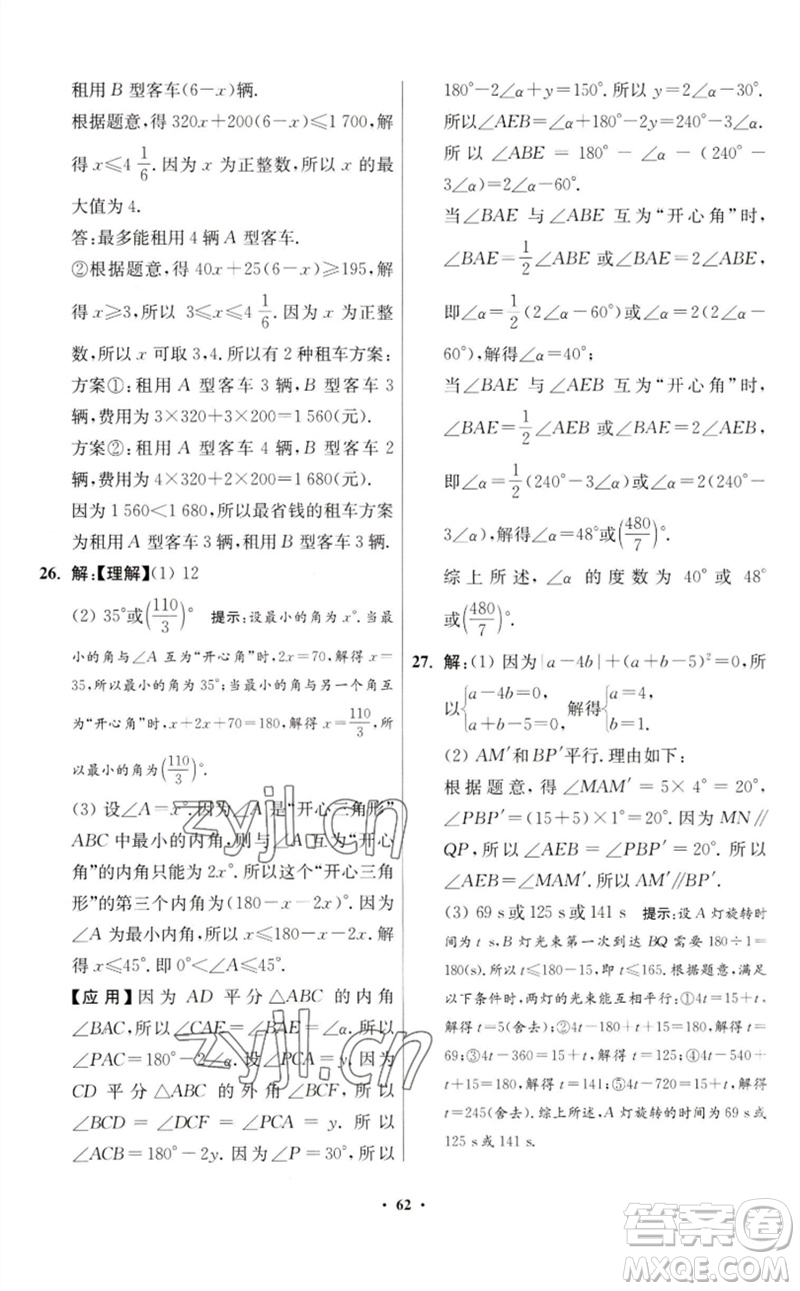 租用B型客车(6-x)辆.
根据题意，得320x+200(6-x)≤1 700，解
得x≤4 1/6. 因为x为正整数，所以x的最
大值为4.
答：最多能租用4辆A型客车.
②根据题意，得40x+25(6-x)≥195，解
得x≥3，所以3≤x≤4 1/6. 因为x为正整
数，所以x可取3，4. 所以有2种租车方案：
方案①：租用A型客车3辆，B型客车3
辆，费用为3×320+3×200=1 560(元).
方案②：租用A型客车4辆，B型客车2
辆，费用为4×320+2×200=1 680(元).
因为1 560<1 680，所以最省钱的租车方案
为租用A型客车3辆，B型客车3辆.
26. 解：【理解】(1) 12
(2) 35°或(110/3)° 提示：设最小的角为x°. 当最
小的角与∠A互为“开心角”时，2x=70，解得x=
35，所以最小的角为35°；当最小的角与第三个角互
为“开心角”时，x+2x+70=180，解得x=110/3，所
以最小的角为(110/3)°.
(3) 设∠A=x°. 因为∠A是“开心三角形”
ABC中最小的内角，则与∠A互为“开心角”
的内角只能为2x°. 所以这个“开心三角
形”的第三个内角为(180-x-2x)°. 因为
∠A为最小内角，所以x≤180-x-2x，所以
x≤45°. 即0°<∠A≤45°.
【应用】因为AD平分△ABC的内角
∠BAC，所以∠CAE=∠BAE=∠α. 所以
∠PAC=180°-2∠α. 设∠PCA=y. 因为
CD平分△ABC的外角∠BCF，所以
∠BCD=∠DCF=∠PCA=y. 所以
∠ACB=180°-2y. 因为∠P=30°，所以
180°-2∠α+y=150°. 所以y=2∠α-30°.
所以∠AEB=∠α+180°-2y=240°-3∠α.
所以∠ABE=180°-∠α-(240°-
3∠α)=2∠α-60°.
当∠BAE与∠ABE互为“开心角”时，
∠BAE=1/2∠ABE或∠BAE=2∠ABE，
即∠α=1/2(2∠α-60°)或∠α=2(2∠α-
60°)，解得∠α=40°；
当∠BAE与∠AEB互为“开心角”时，
∠BAE=1/2∠AEB或∠BAE=2∠AEB，
即∠α=1/2(240°-3∠α)或∠α=2(240°-
3∠α)，解得∠α=48°或(480/7)°.
综上所述，∠α的度数为40°或48°
或(480/7)°.
27. 解：(1) 因为|a-4b|+(a+b-5)²=0，所
以{a-4b=0, a+b-5=0, 解得{a=4, b=1.
(2) AM′和BP′平行. 理由如下：
根据题意，得∠MAM′=5×4°=20°，
∠PBP′=(15+5)×1°=20°. 因为MN∥
QP，所以∠AEB=∠PBP′=20°. 所以
∠AEB=∠MAM′. 所以AM′∥BP′.
(3) 69 s或125 s或141 s 提示：设A灯旋转时
间为t s，B灯光束第一次到达BQ需要180÷1=
180(s). 所以t≤180-15，即t≤165. 根据题意，满足
以下条件时，两灯的光束能互相平行：①4t=15+t，
解得t=5(舍去)；②4t-180=180-15-t，解得t=
69；③4t-360=15+t，解得t=125；④4t-540+
t+15=180，解得t=141；⑤4t-720=15+t，解得
t=245(舍去). 综上所述，A灯旋转的时间为69 s或
125 s或141 s.
zyjl.cn
zyjl.cn
• 62 •
答案卷
MXQE.COM